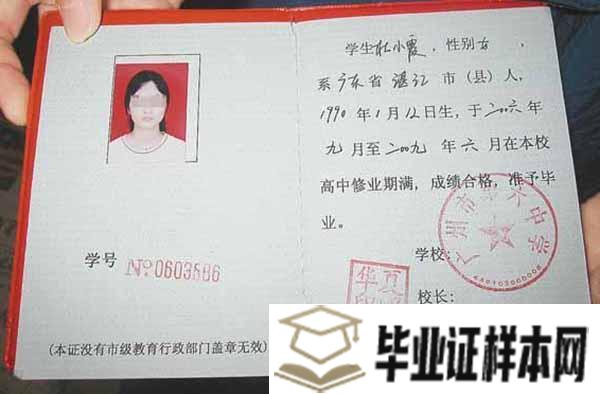 学生杜小霞，性别女，
系广东省湛江市（县）人，
1990年1月12日生，于二〇〇六年
九月至二〇〇九年六月在本校
高中修业期满，成绩合格，准予毕
业。
学校：
广州市第六中学
4401030008008
校长：
学号 №0603586
(本证没有市级教育行政部门盖章无效)
毕业证样本网